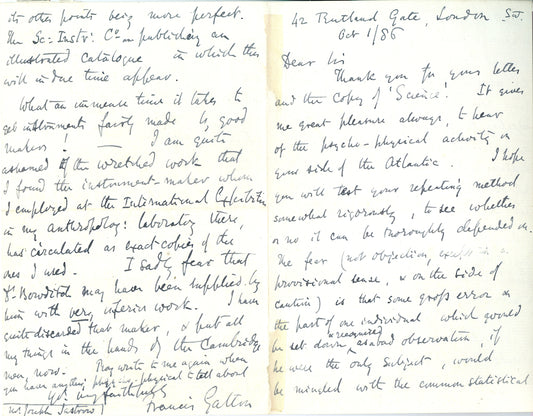 42 Rutland Gate, London S.W.
Oct 1/86
Dear Sir
Thank you for your letter
and the copy of 'Science'. It gives
me great pleasure always, to hear
of the psycho-physical activity on
your side of the Atlantic. I hope
you will test your repeating method
somewhat rigorously, to see whether
or no it can be thoroughly depended on.
The fear (not objection, except in a
provisional sense, & on the side of
caution) is that some gross error on
the part of one individual which would
be set down, unrecognized as a bad observation, if
he were the only subject, would
be mingled with the common statistical
its other points being more perfect.
The Sc: Instr: Co are publishing an
illustrated catalogue in which this
will in due time appear.
What an immense time it takes to
get instruments fairly made by good
makers. — I am quite
ashamed of the wretched work that
I found the instrument-maker whom
I employed at the International Exhibition
in my anthropolog: laboratory there,
has circulated as exact copies of the
ones I used. I sadly fear that
Dr Bowditch may have been supplied by
him with very inferior work. I have
quite discarded that maker, & put all
my things in the hands of the Cambridge
men, now. Pray write to me again when
you have anything psycho-physical to tell about
Yrs very faithfully
Francis Galton
Mr Joseph Jastrow